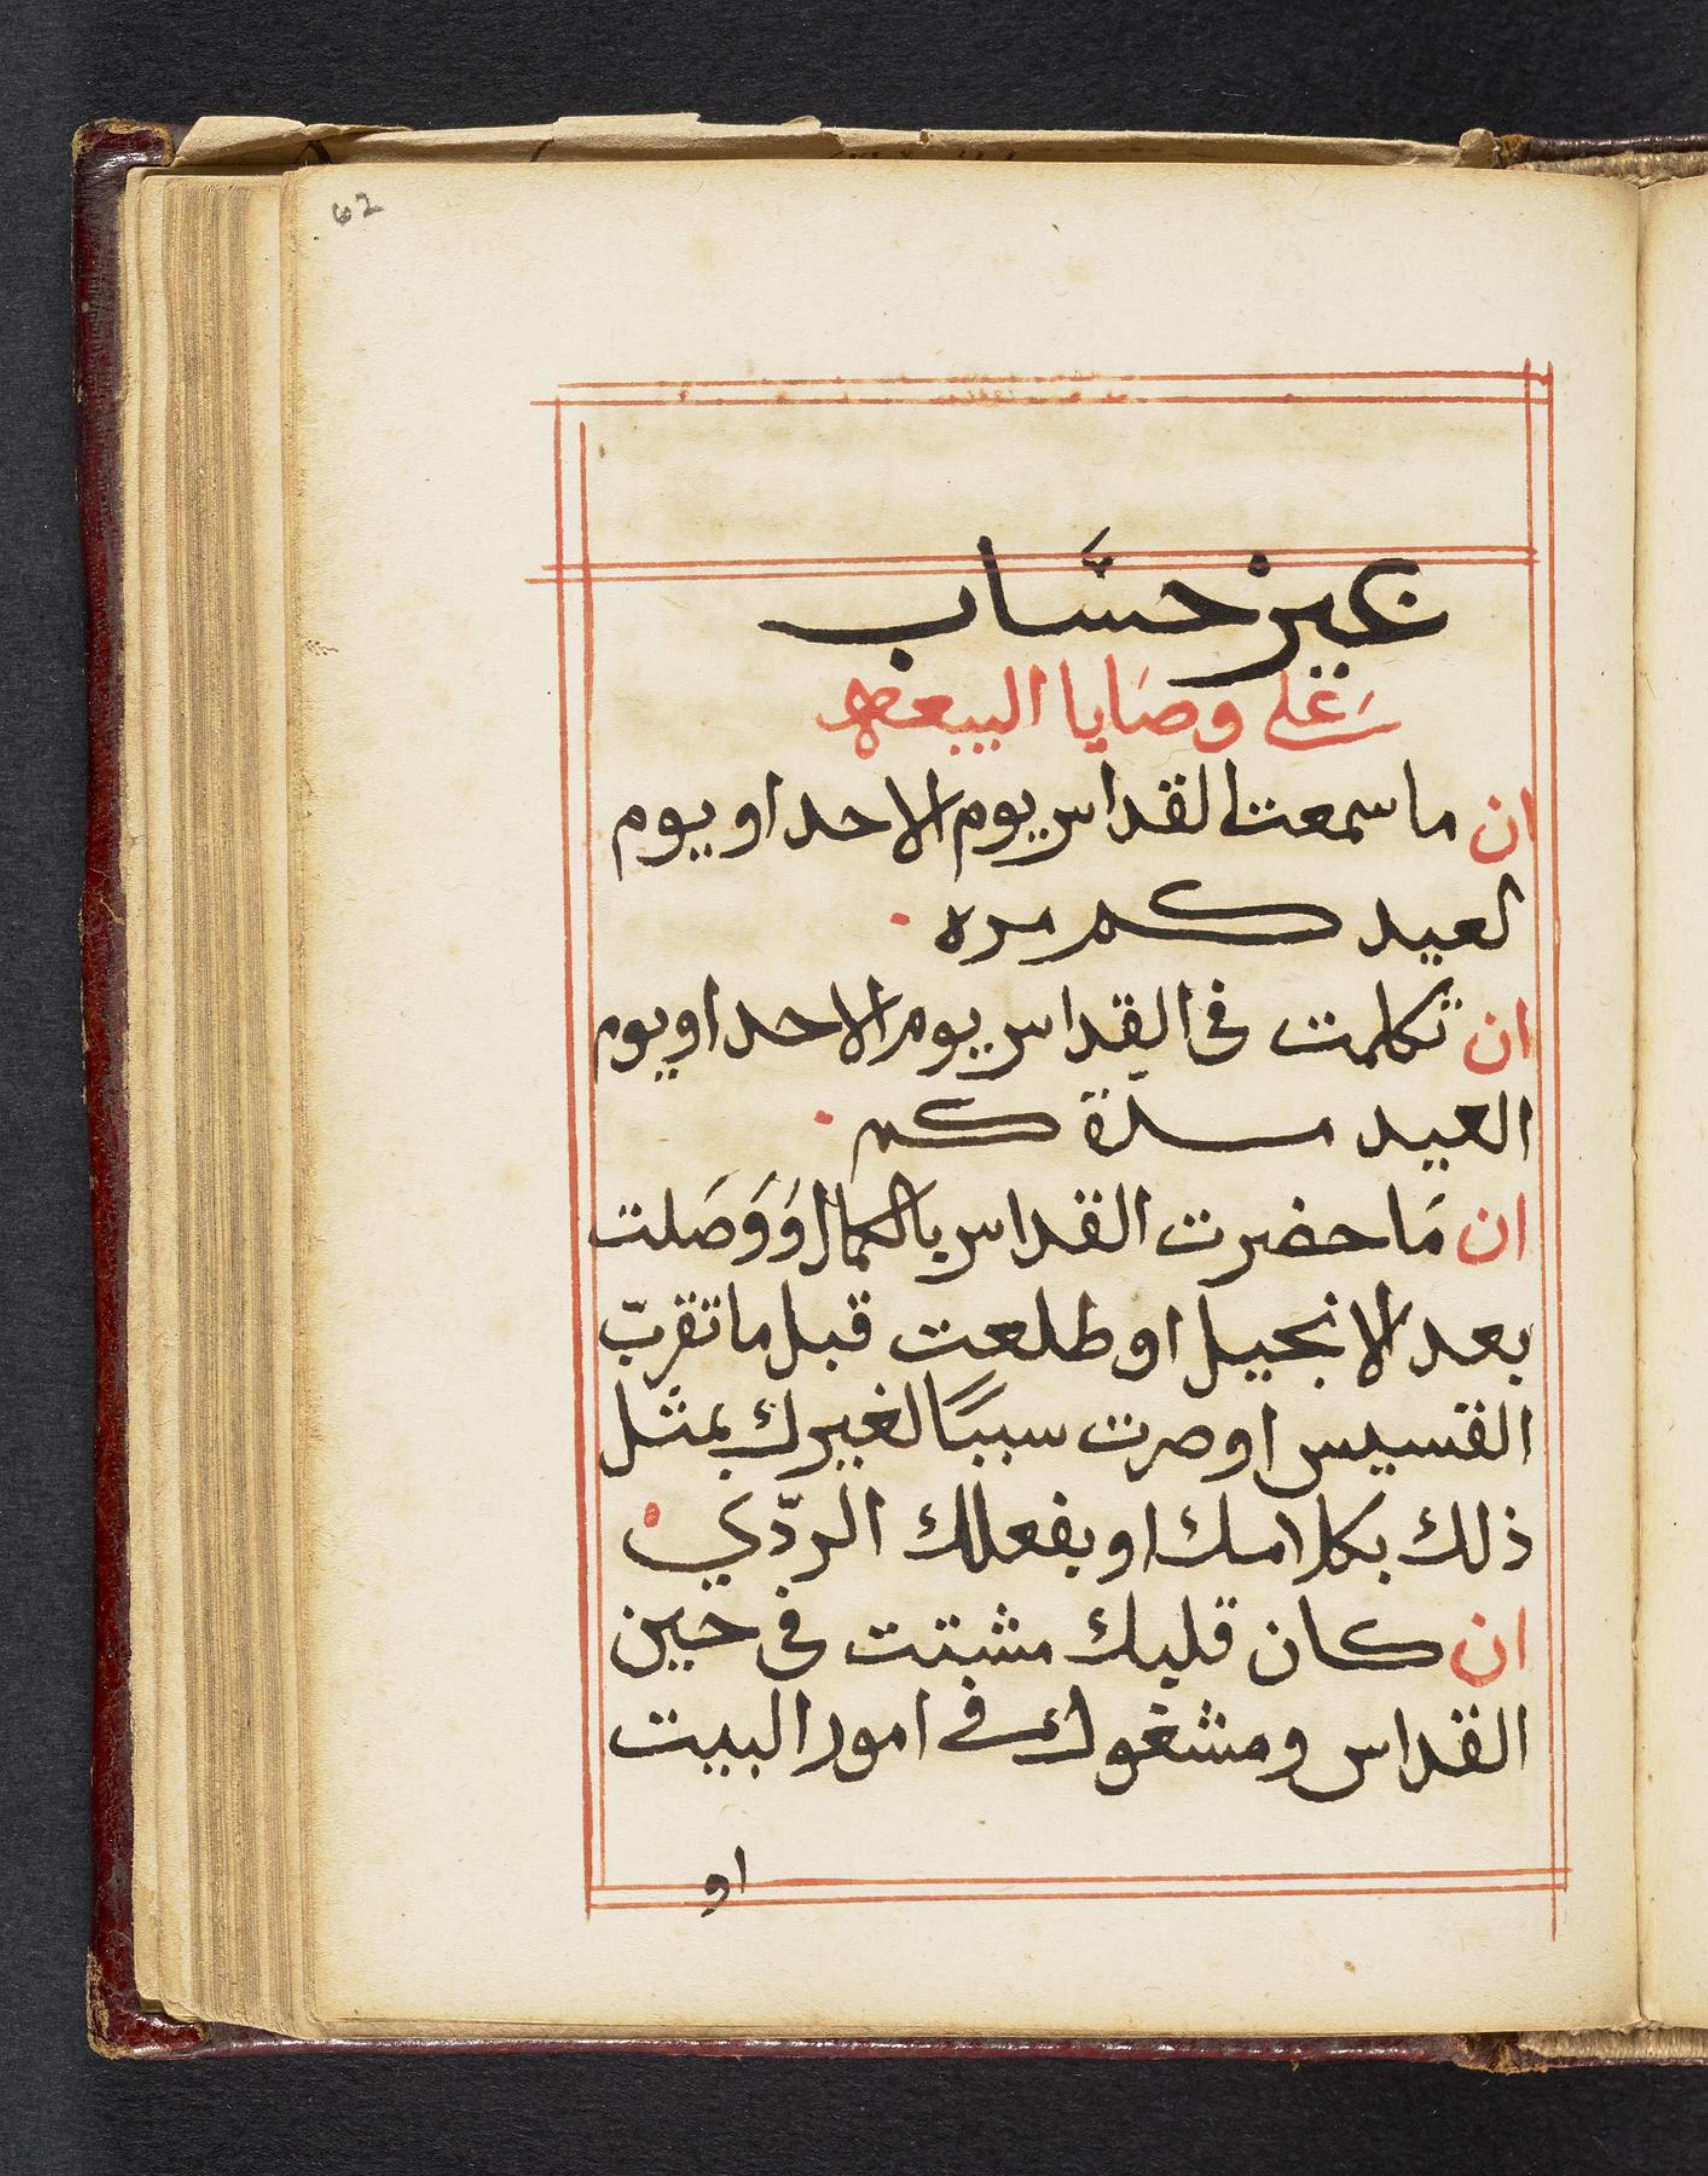 62
غير حسَّاب
على وصَايا البيعه
ان ما سمعت القداس يوم الاحد او يوم
لعيد كم مره
ان تكلمت فى القداس يوم الاحد او يوم
العيد مرة كم
ان مَا حضرت القداس بالكمال وَوَصَلت
بعد الانجيل او طلعت قبل ما تقرب
القسيس او صرت سببًا لغيرك بمثل
ذلك بكلامك او بفعلك الردّي
ان كان قلبك مشبتت فى حين
القداس ومشغول فى امور البيت
او